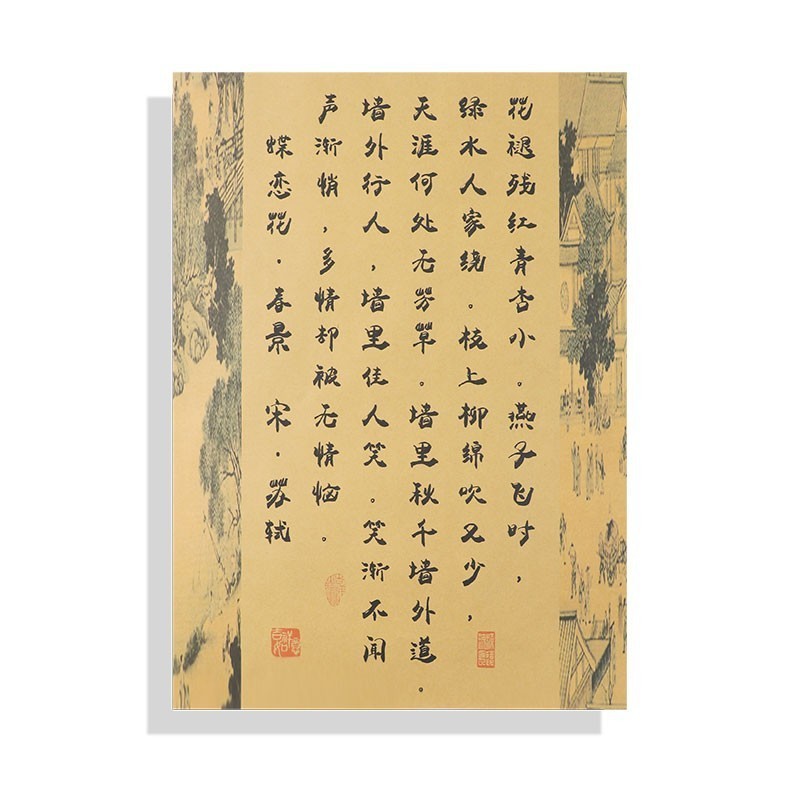 花褪残红青杏小。燕子飞时，
绿水人家绕。枝上柳绵吹又少，
天涯何处无芳草。墙里秋千墙外道。
墙外行人，墙里佳人笑。笑渐不闻
声渐悄，多情却被无情恼。
蝶恋花·春景 宋·苏轼